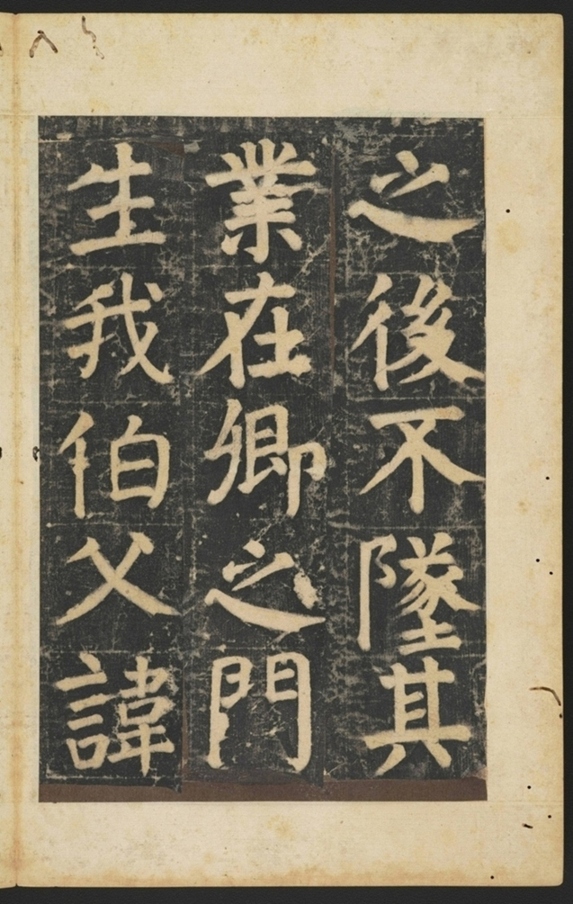 之後不墜其
業在卿之門
生我伯父諱